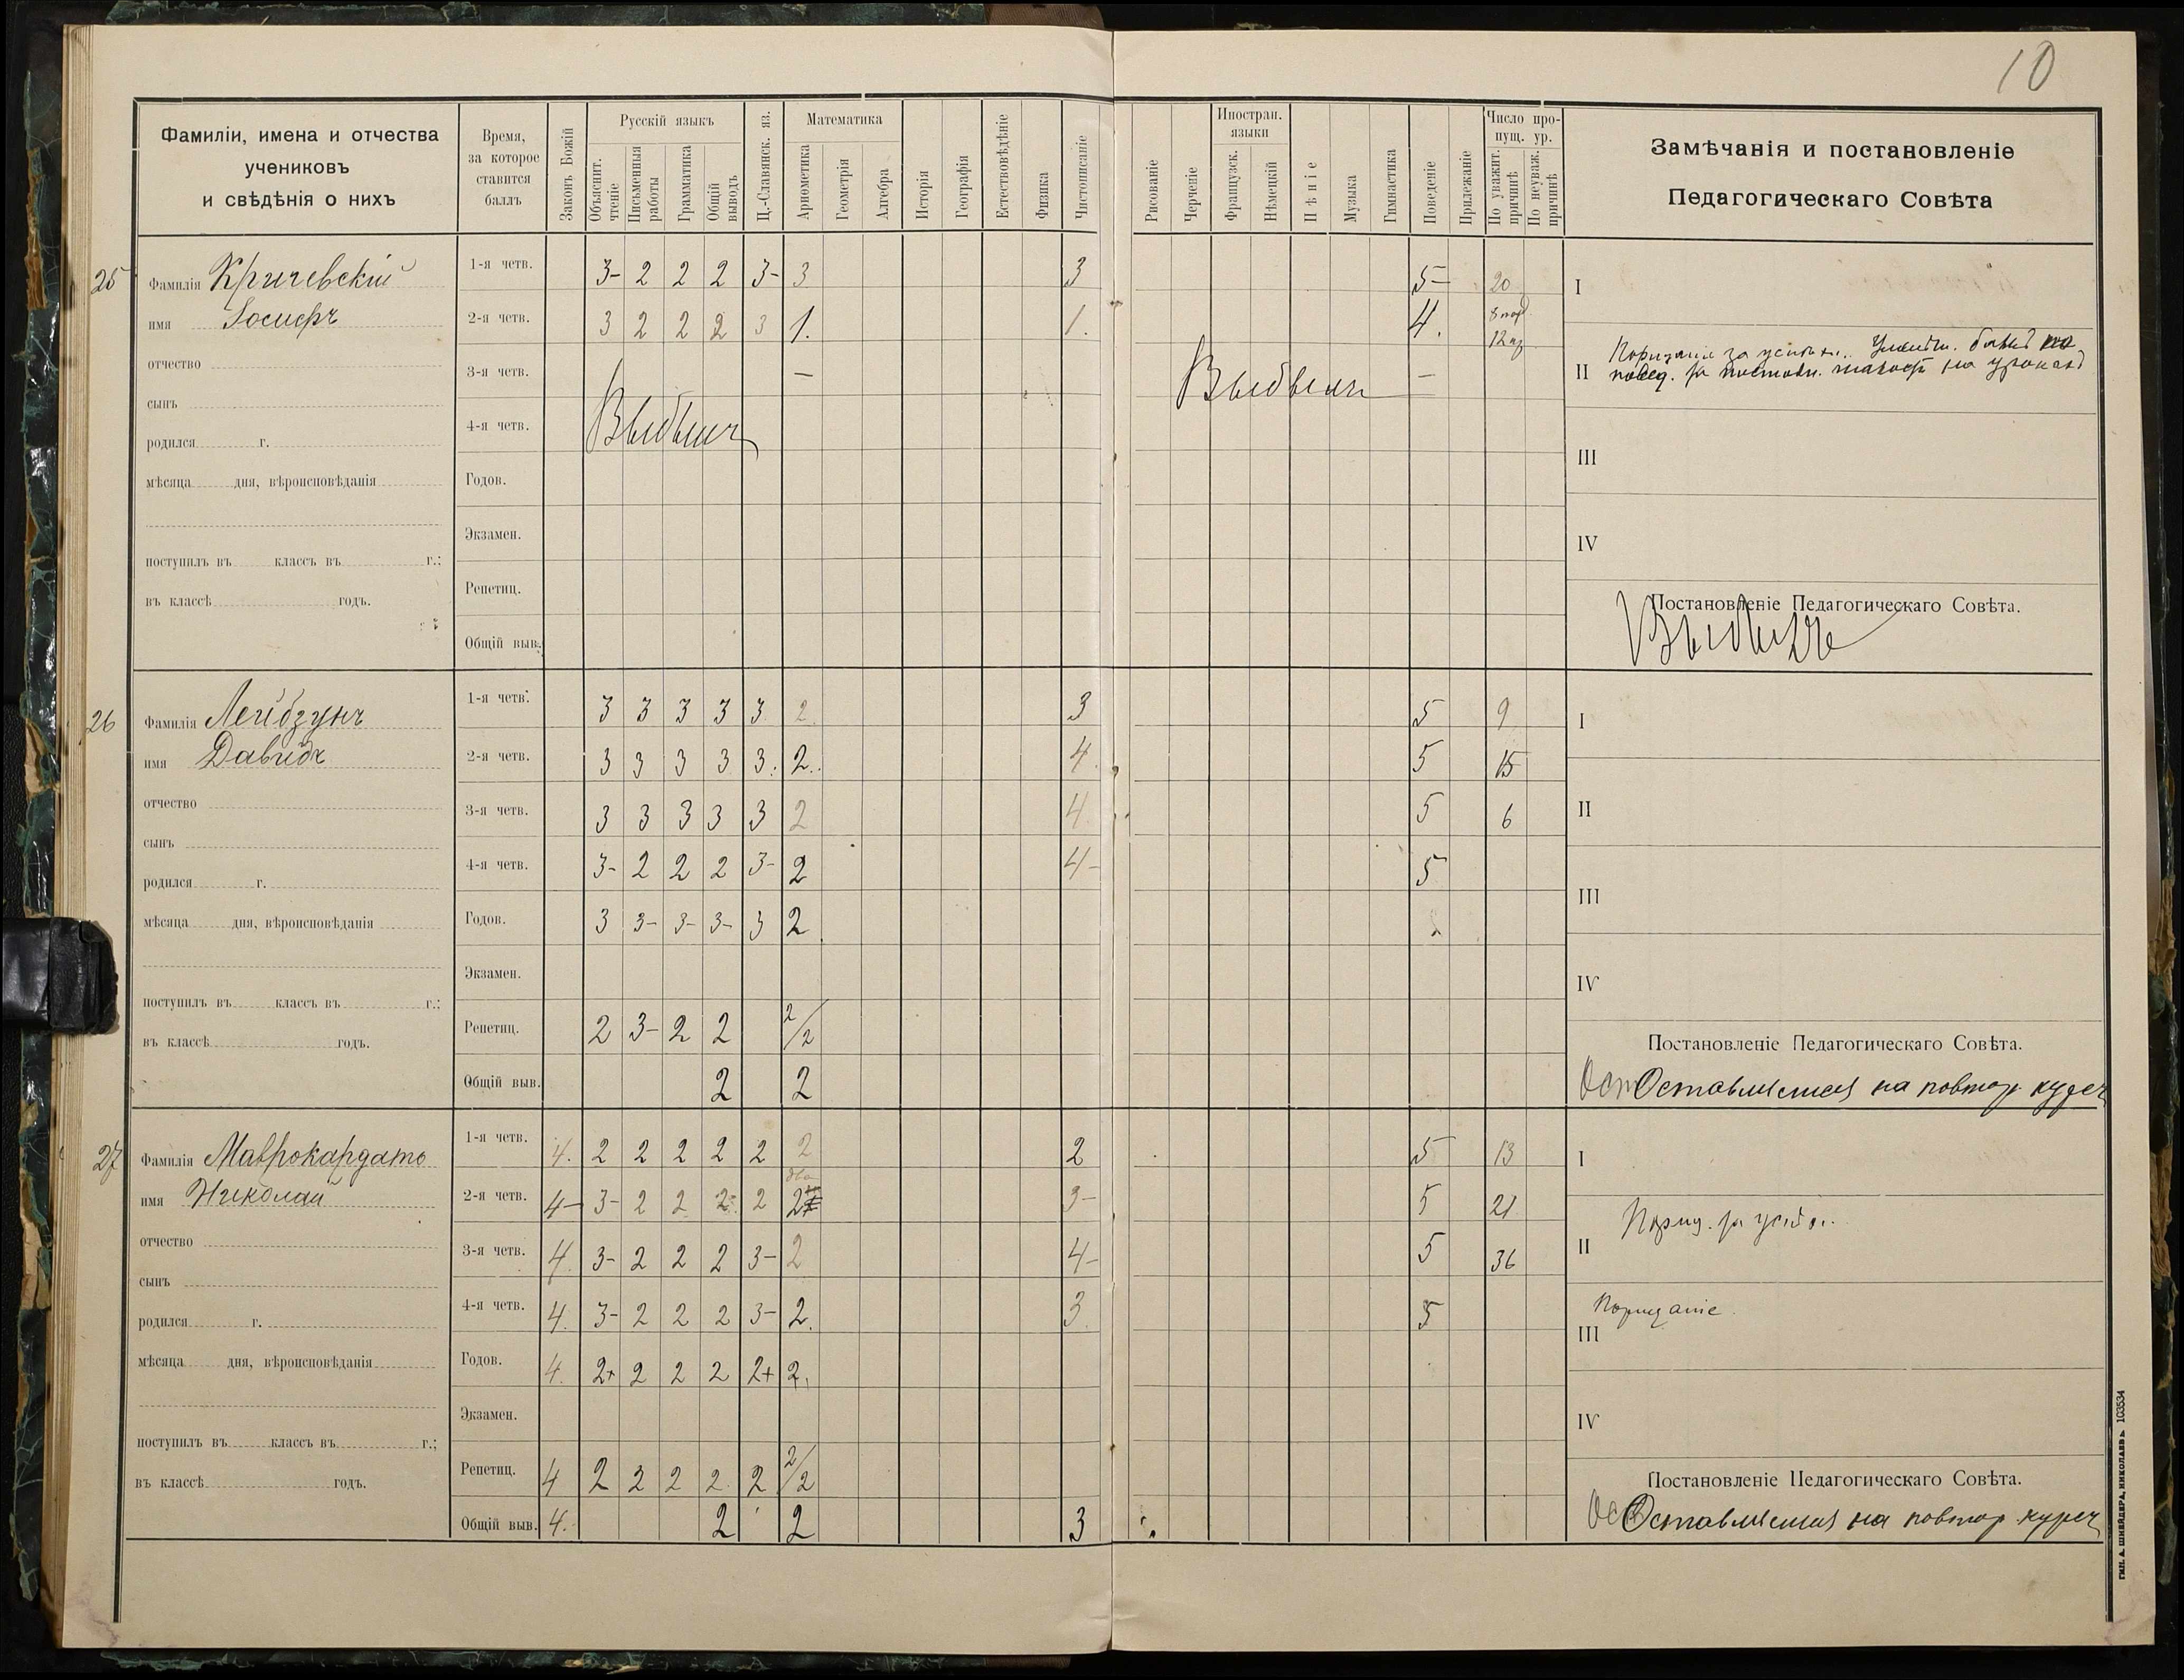 10
Фамиліи, имена и отчества
учениковъ
и свѣдѣнія о нихъ
Время,
за которое
ставится
баллъ
Законъ Божій
Русскій языкъ
Объяснит. чтеніе
Письменныя работы
Грамматика
Общій выводъ
Ц.-Славянск. яз.
Математика
Ариѳметика
Геометрія
Алгебра
Исторія
Географія
Естествовѣдѣніе
Физика
Чистописаніе
Рисованіе
Черченіе
Иностран. языки
Французск.
Нѣмецкій
Пѣніе
Музыка
Гимнастика
Поведеніе
Прилежаніе
Число пропущ. ур.
По уважит. причинѣ
По неуваж. причинѣ
Замѣчанія и постановленіе
Педагогическаго Совѣта
25
Фамилія Кричевскій
имя Іосифъ
отчество
сынъ
родился г.
мѣсяца дня, вѣроисповѣданія
поступилъ въ классъ въ г.:
въ классѣ годъ.
1-я четв. 3- 2 2 2 3- 3 3 5- 20
2-я четв. 3 2 2 2 3 1. 1. 4. 8 12
3-я четв. — Выбылъ —
4-я четв. Выбылъ
Годов.
Экзамен.
Репетиц.
Общій выв.
I
II Порицаніе за на урокахъ
III
IV
Постановленіе Педагогическаго Совѣта.
Выбылъ
26
Фамилія Лейбзунъ
имя Давидъ
отчество
сынъ
родился г.
мѣсяца дня, вѣроисповѣданія
поступилъ въ классъ въ г.:
въ классѣ годъ.
1-я четв. 3 3 3 3 3 2 3 5 9
2-я четв. 3 3 3 3 3. 2. 4. 5 15
3-я четв. 3 3 3 3 3 2 4 5 6
4-я четв. 3- 2 2 2 3- 2 4- 5
Годов. 3 3- 3- 3- 3 2
Экзамен.
Репетиц. 2 3- 2 2 2/2
Общій выв. 2 2
I
II
III
IV
Постановленіе Педагогическаго Совѣта.
Ост Оставляется на повтор. курсъ
27
Фамилія Маврокардато
имя Николай
отчество
сынъ
родился г.
мѣсяца дня, вѣроисповѣданія
поступилъ въ классъ въ г.;
въ классѣ годъ.
1-я четв. 4. 2 2 2 2 2 2 2 5 13
2-я четв. 4- 3- 2 2 2 2 два 2 3- 5 21
3-я четв. 4 3- 2 2 2 3- 2 4- 5 36
4-я четв. 4. 3- 2 2 2 3- 2. 3. 5
Годов. 4. 2+ 2 2 2 2+ 2.
Экзамен.
Репетиц. 4 2 2 2 2 2 2/2
Общій выв. 4. 2 2 3
I
II Пориц. за
III Порицаніе.
IV
Постановленіе Педагогическаго Совѣта.
Ост Оставляется на повтор. курсъ
ТИП. А. ШНЕЙДЕРА, НИКОЛАЕВЪ 103534